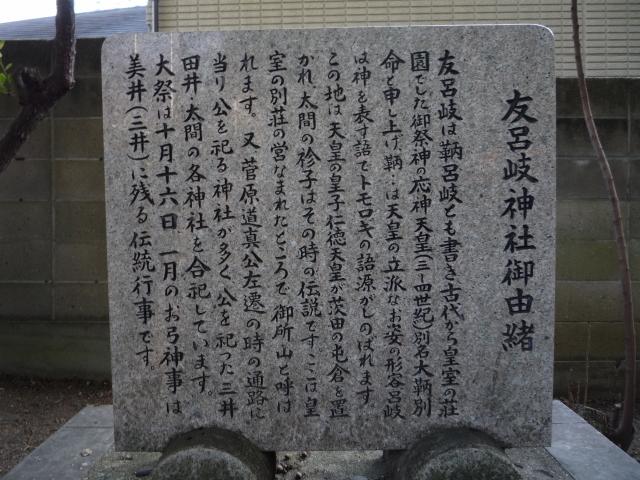 友呂岐神社御由緒
友呂岐は鞆呂岐とも書き古代から皇室の荘
園でした御祭神の応神天皇(三-四世紀)別名大鞆別
命と申し上げ、鞆…は天皇の立派なお姿の形容呂岐
は神を表す語でトモロキの語源がしのばれます
この地は天皇の皇子仁徳天皇が茨田の屯倉を置
かれ太間の衫子はその時の伝説ですここは皇
室の別荘の営なまれたところで御所山と呼は
れます。又菅原道真公左遷の時の通路に
当り公を祀る神社が多く、公を祀った三井
田井、太間の各神社を合祀しています。
大祭は十月十六日 一月のお弓神事は
美井(三井)に残る伝統行事です。